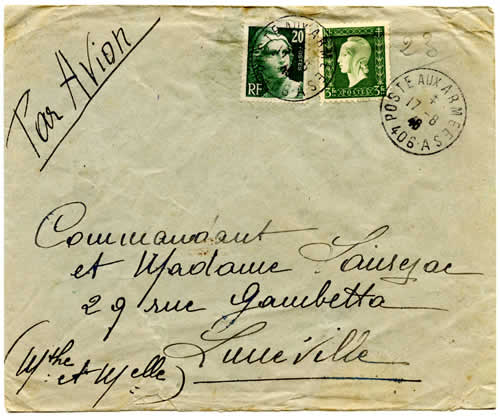 Par Avion
20
RF
POSTES
3F POSTES 3F
POSTE AUX ARMÉES
17-8
406 A.S
Commandant
et Madame
29 rue Gambetta
Lunéville
(Mthe et Melle)